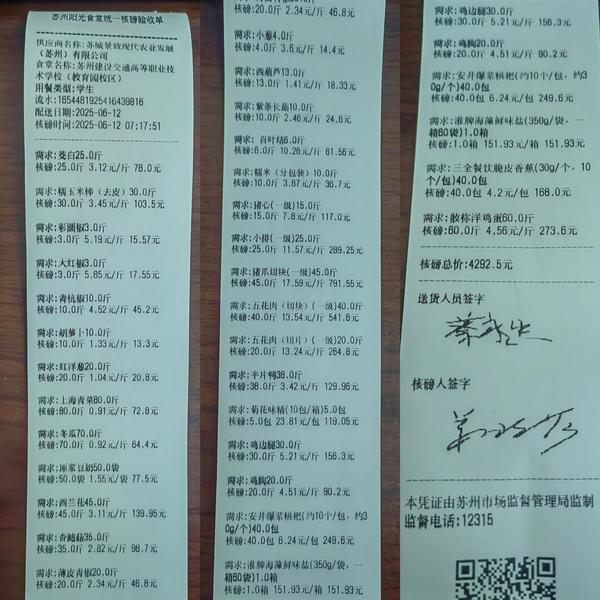 苏州阳光食堂统一核磅验收单
供应商名称:苏城景致现代农业发展
(苏州)有限公司
食堂名称:苏州建设交通高等职业技
术学校(教育园校区)
用餐类型:学生
流水:1654481925416439816
配送日期:2025-06-12
核磅时间:2025-06-12 07:17:51
需求:茭白25.0斤
核磅:25.0斤 3.12元/斤 78.0元
需求:糯玉米棒（去皮）30.0斤
核磅:30.0斤 3.45元/斤 103.5元
需求:彩圆椒3.0斤
核磅:3.0斤 5.19元/斤 15.57元
需求:大红椒3.0斤
核磅:3.0斤 5.85元/斤 17.55元
需求:青杭椒10.0斤
核磅:10.0斤 4.52元/斤 45.2元
需求:胡萝卜10.0斤
核磅:10.0斤 1.33元/斤 13.3元
需求:红洋葱20.0斤
核磅:20.0斤 1.04元/斤 20.8元
需求:上海青菜80.0斤
核磅:80.0斤 0.91元/斤 72.8元
需求:冬瓜70.0斤
核磅:70.0斤 0.92元/斤 64.4元
需求:原浆豆奶50.0袋
核磅:50.0袋 1.55元/袋 77.5元
需求:西兰花45.0斤
核磅:45.0斤 3.11元/斤 139.95元
需求:杏鲍菇35.0斤
核磅:35.0斤 2.82元/斤 98.7元
需求:薄皮青椒20.0斤
核磅:20.0斤 2.34元/斤 46.8元
核磅:20.0斤 2.34元/斤 46.8元
需求:小葱4.0斤
核磅:4.0斤 3.6元/斤 14.4元
需求:西葫芦13.0斤
核磅:13.0斤 1.41元/斤 18.33元
需求:紫条长茄10.0斤
核磅:10.0斤 2.46元/斤 24.6元
需求:百叶结6.0斤
核磅:6.0斤 10.26元/斤 61.56元
需求:糯米（分包装）10.0斤
核磅:10.0斤 3.67元/斤 36.7元
需求:猪心(一级)15.0斤
核磅:15.0斤 7.8元/斤 117.0元
需求:小排(一级)25.0斤
核磅:25.0斤 11.57元/斤 289.25元
需求:猪爪切块(一级)45.0斤
核磅:45.0斤 17.59元/斤 791.55元
需求:五花肉（切块）(一级)40.0斤
核磅:40.0斤 13.54元/斤 541.6元
需求:五花肉（切片）(一级)20.0斤
核磅:20.0斤 13.24元/斤 264.8元
需求:半片鸭38.0斤
核磅:38.0斤 3.42元/斤 129.96元
需求:菊花味精(10包/箱)5.0包
核磅:5.0包 23.81元/包 119.05元
需求:鸡边腿30.0斤
核磅:30.0斤 5.21元/斤 156.3元
需求:鸡胸20.0斤
核磅:20.0斤 4.51元/斤 90.2元
需求:安井爆浆糍粑(约10个/包,约3
0g/个)40.0包
核磅:40.0包 6.24元/包 249.6元
需求:淮牌海藻鲜味盐(350g/袋,一
箱60袋)1.0箱
核磅:1.0箱 151.93元/箱 151.93元
需求:鸡边腿30.0斤
核磅:30.0斤 5.21元/斤 156.3元
需求:鸡胸20.0斤
核磅:20.0斤 4.51元/斤 90.2元
需求:安井爆浆糍粑(约10个/包,约3
0g/个)40.0包
核磅:40.0包 6.24元/包 249.6元
需求:淮牌海藻鲜味盐(350g/袋,一
箱60袋)1.0箱
核磅:1.0箱 151.93元/箱 151.93元
需求:三全餐饮脆皮香蕉(30g/个,10
个/包)40.0包
核磅:40.0包 4.2元/包 168.0元
需求:散称洋鸡蛋60.0斤
核磅:60.0斤 4.56元/斤 273.6元
核磅总价:4292.5元
送货人员签字
核磅人签字
本凭证由苏州市场监督管理局监制
监督电话:12315